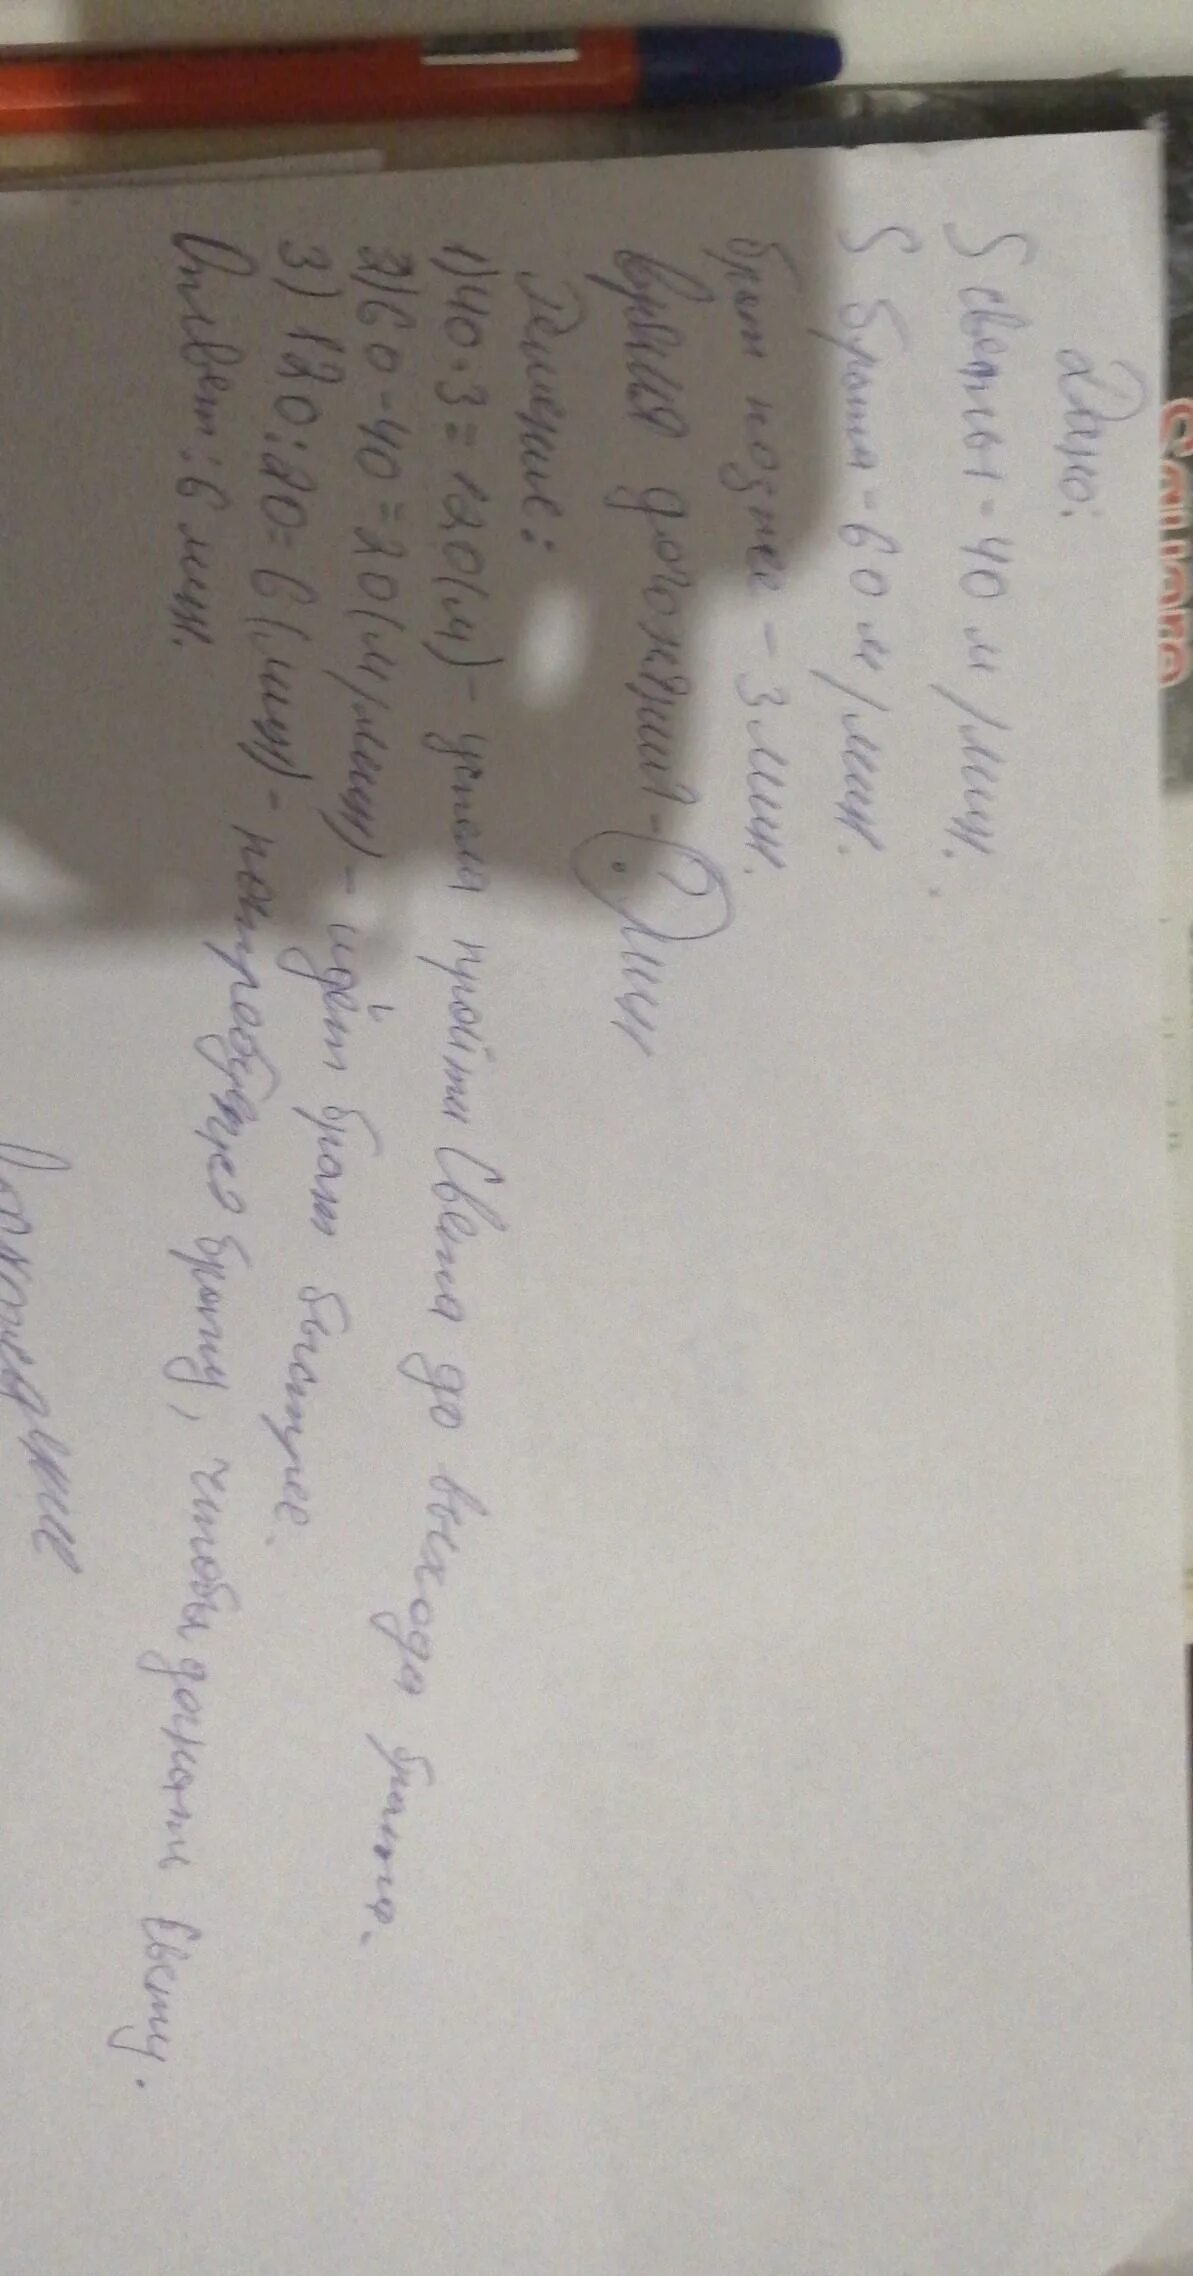 Дано:
S светы - 40 м/мин.
S брата - 60 м/мин.
брат позже - 3 мин.
время
Решение:
1) 40 · 3 = 120 (м) - успела пройти Света до выхода брата.
2) 60 - 40 = 20 (м/мин) - идёт брат быстрее.
3) 120 : 20 = 6 (мин) - потребуется брату, чтобы догнать Свету.
Ответ: 6 мин.